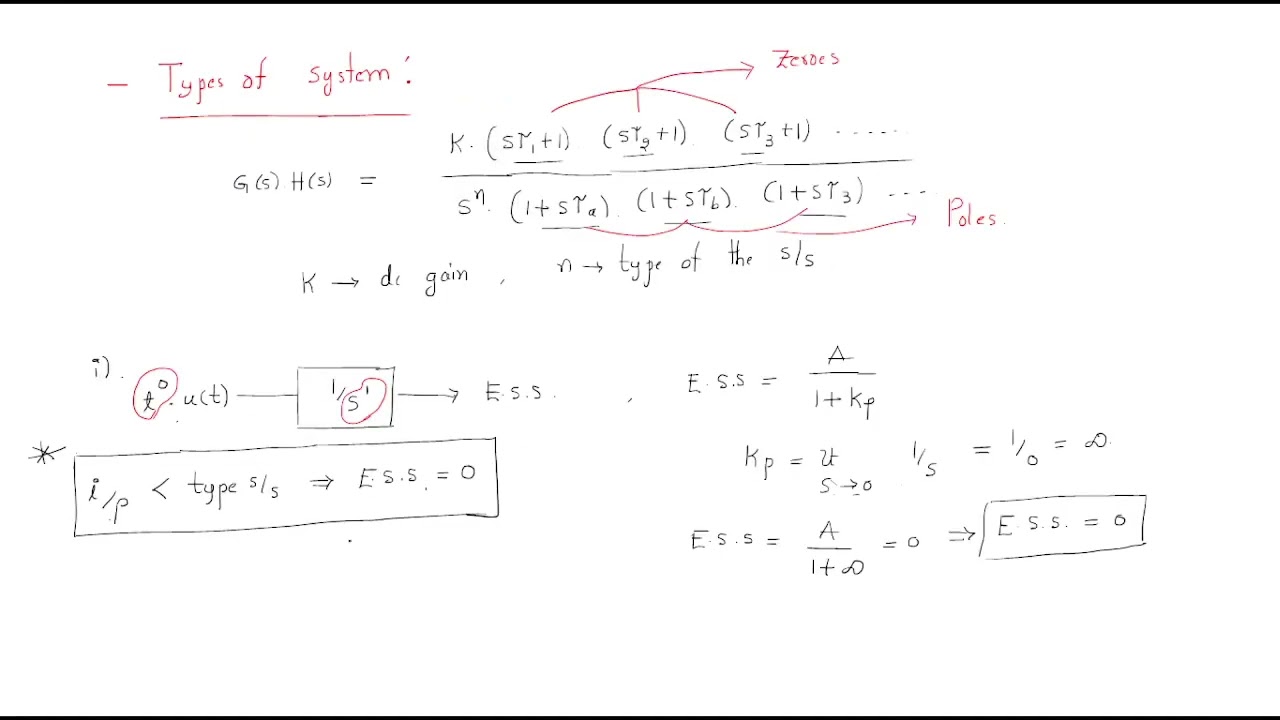 - Types of system:
zeroes
G(s).H(s) = K.(sτ1+1).(sτ2+1).(sτ3+1) ...... / s^n.(1+sτa).(1+sτb).(1+sτ3) ....
Poles.
K → dc gain , n → type of the s/s
i). t^0.u(t) → 1/s^1 → E.S.S. , E.S.S = A / 1+Kp
Kp = lt s→0 1/s = 1/0 = ∞
* i/p < type s/s ⇒ E.S.S. = 0
E.S.S = A / 1+∞ = 0 ⇒ E.S.S. = 0